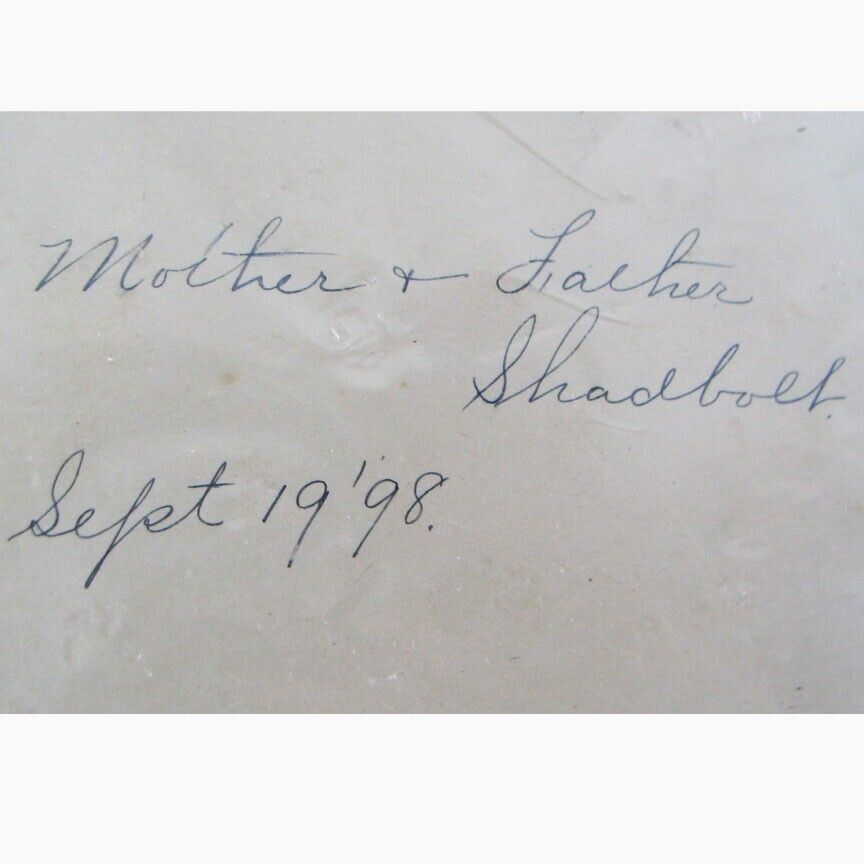 Mother + Father
Shadbolt.
Sept 19 '98.